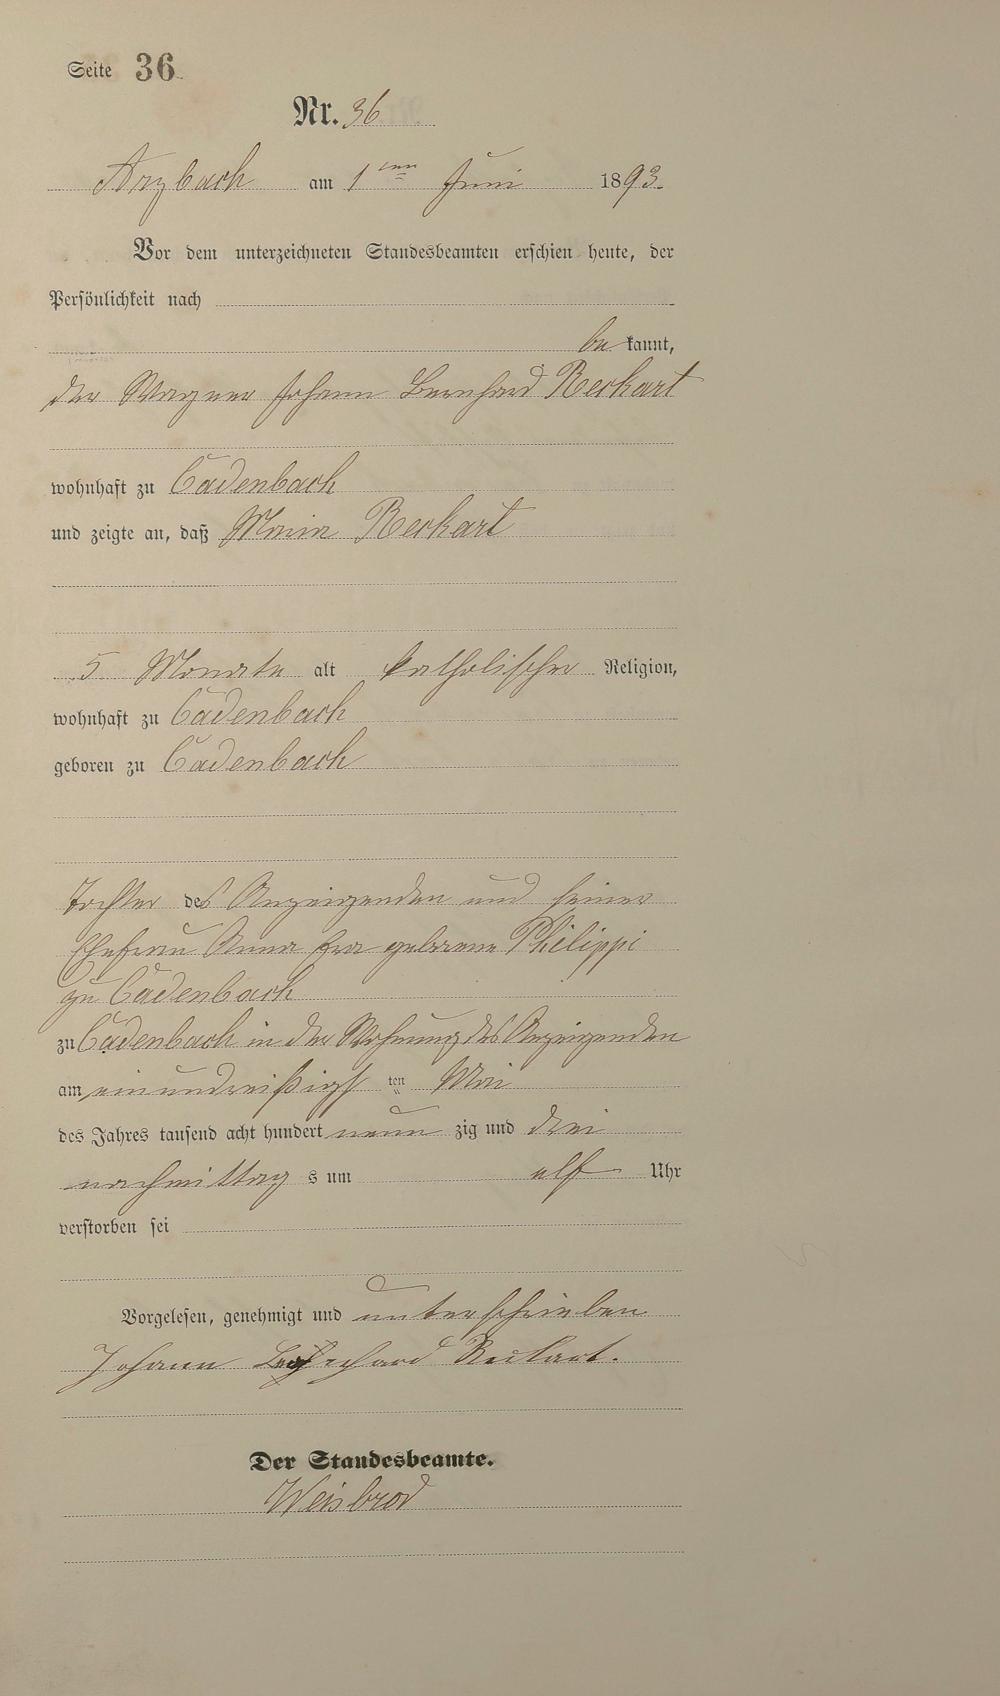 Seite 36
Nr. 36
Arzbach am 1ten Juni 1893.
Vor dem unterzeichneten Standesbeamten erschien heute, der
Persönlichkeit nach
be kannt,
der Wagner Johann Bernhard Reckart
wohnhaft zu Cadenbach
und zeigte an, daß Maria Reckart
5 Monate alt katholischer Religion,
wohnhaft zu Cadenbach
geboren zu Cadenbach
Tochter des Anzeigenden und seiner
Ehefrau Anna Eva geborene Philippi
zu Cadenbach
zu Cadenbach in der Wohnung des Anzeigenden
am einunddreißigst ten Mai
des Jahres tausend acht hundert neun zig und drei
nachmittag s um elf Uhr
verstorben sei
Vorgelesen, genehmigt und unterschrieben
Johann Reckart.
Der Standesbeamte.
Weisbrod